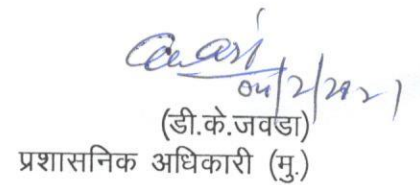 04/2/2021
(डी.के.जवडा)
प्रशासनिक अधिकारी (मु.)